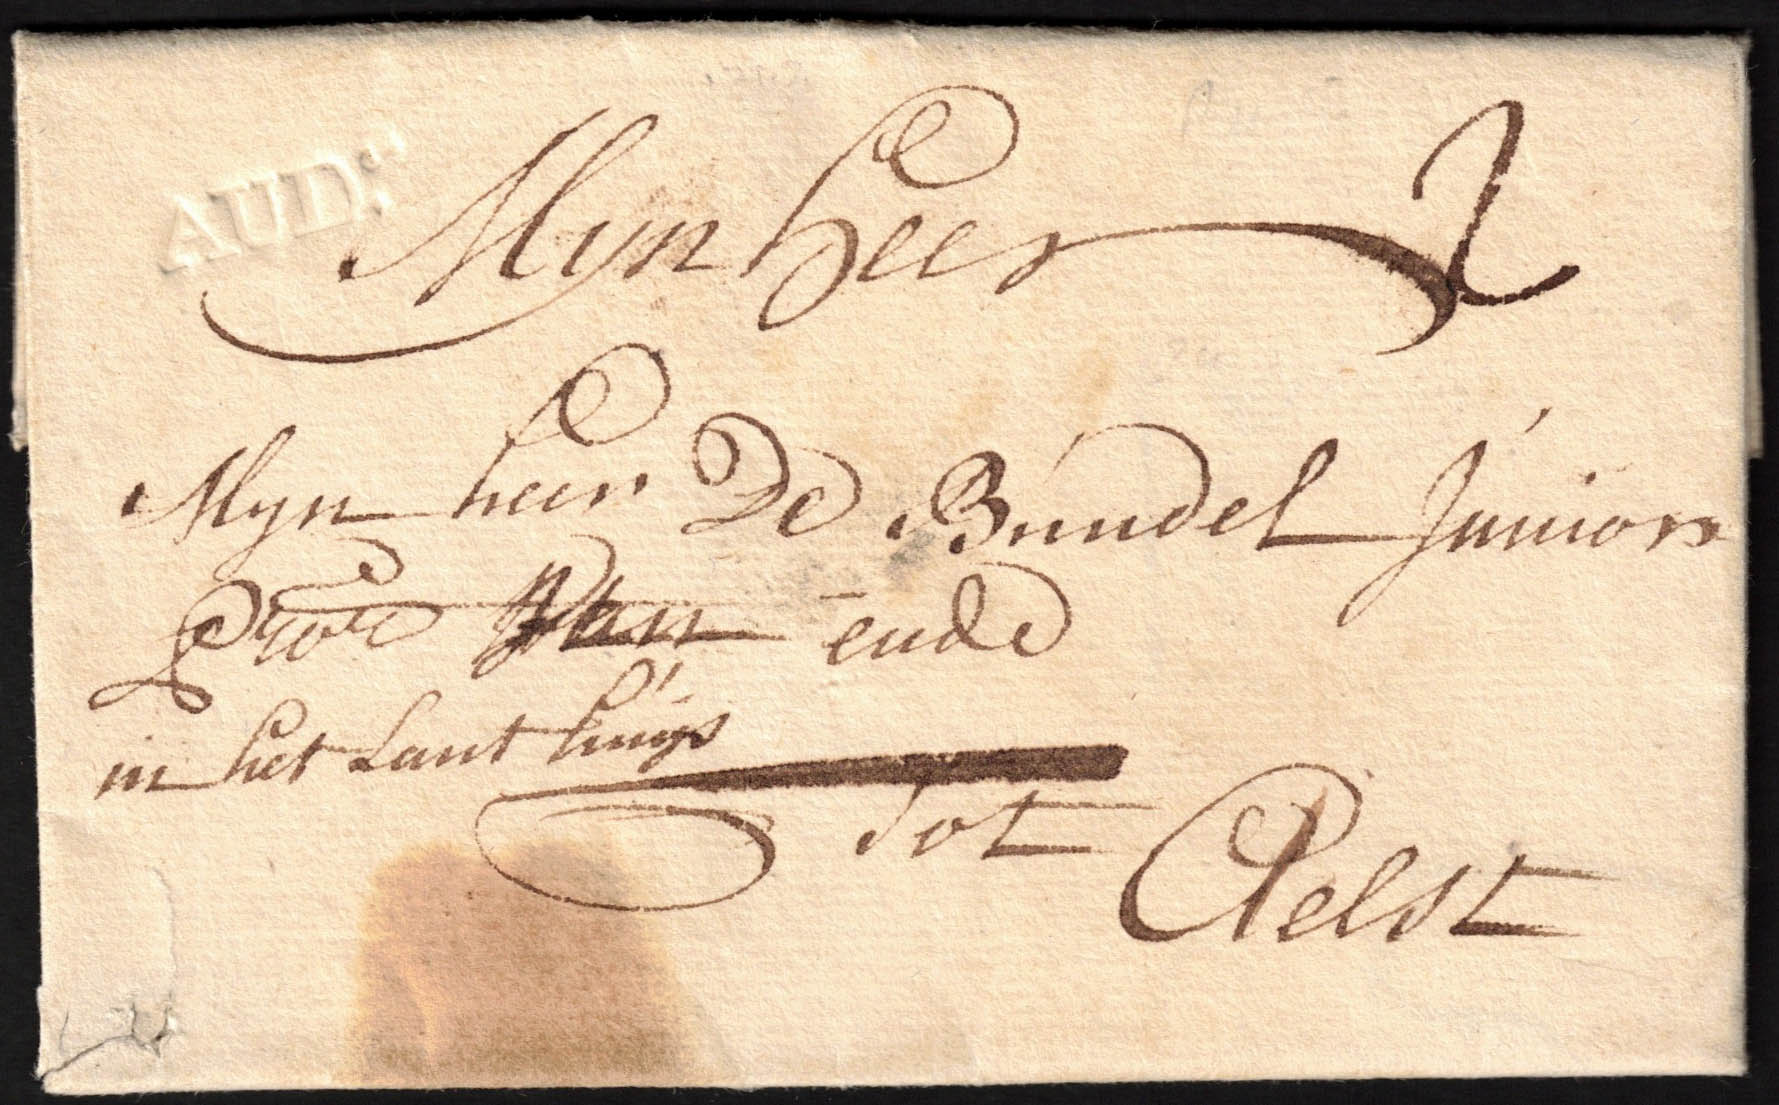 AUD:
Mynheer 2
Myn heer De Bundel Junior
ende
in het Lant huijs
tot
Aelst